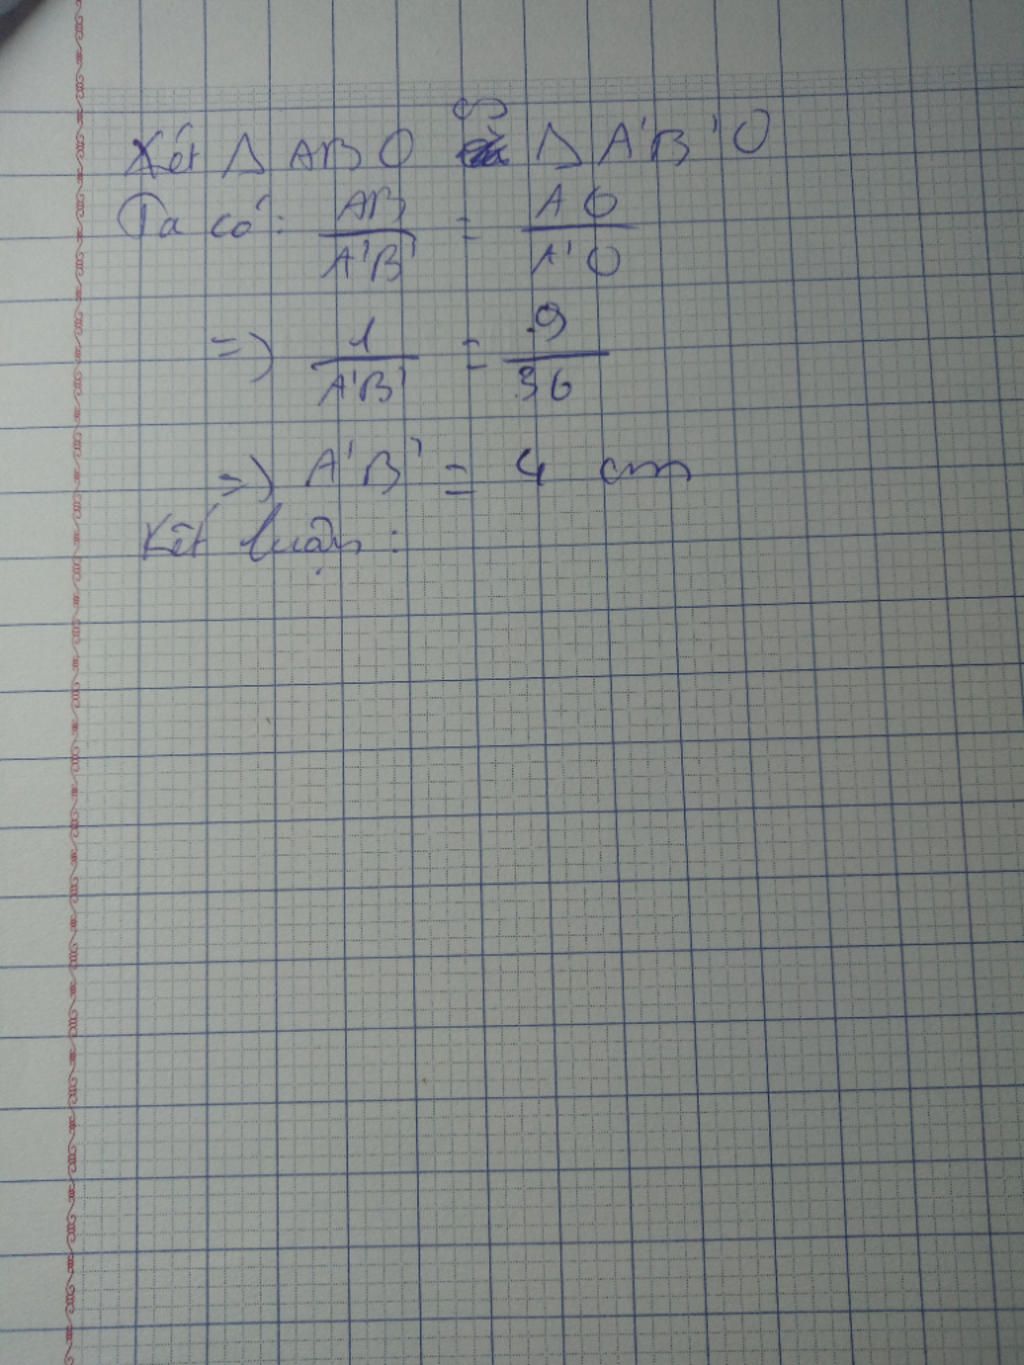 Xét Δ ABO ∽ Δ A'B'O
Ta có: AB/A'B' = AO/A'O
=> 1/A'B' = 9/36
=> A'B' = 4 cm
Kết luận: